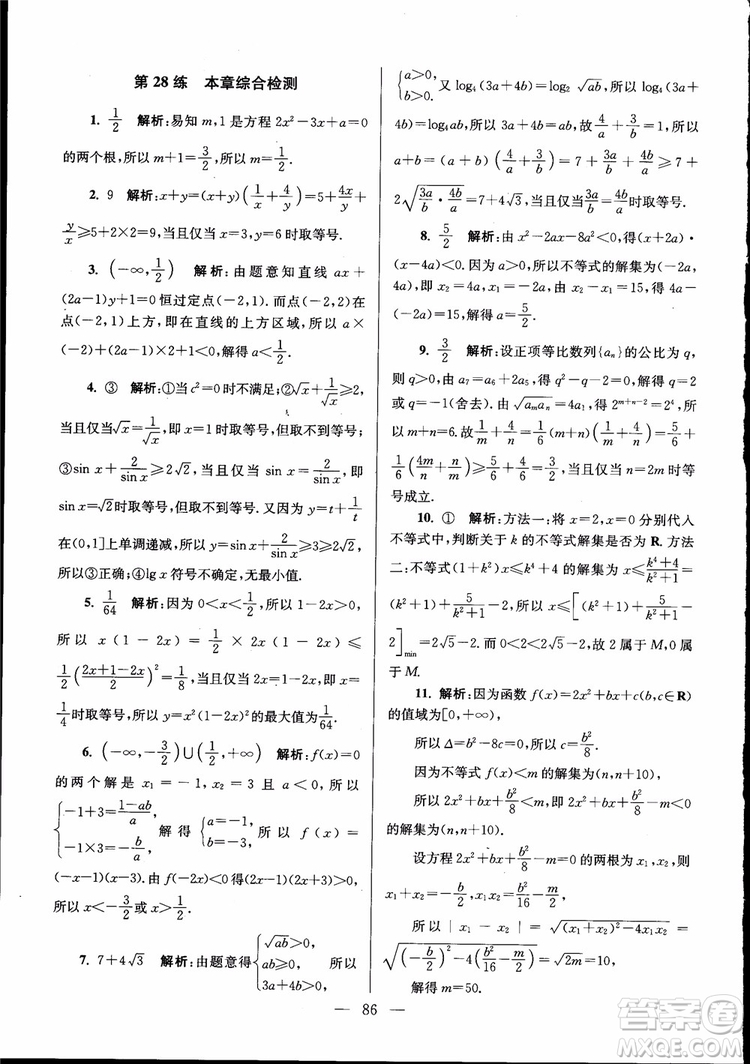 第28练 本章综合检测
1. 1/2 解析:易知 m,1 是方程 2x²-3x+a=0
的两个根,所以 m+1=3/2,所以 m=1/2.
2. 9 解析:x+y=(x+y)(1/x+4/y)=5+4x/y+
y/x≥5+2×2=9,当且仅当 x=3,y=6 时取等号.
3. (-∞,1/2) 解析:由题意知直线 ax+
(2a-1)y+1=0 恒过定点(-2,1).而点(-2,2)在
点(-2,1)上方,即在直线的上方区域,所以 a×
(-2)+(2a-1)×2+1<0,解得 a<1/2.
4. ③ 解析:①当 c²=0 时不满足;②√x+1/√x≥2,
当且仅当√x=1/√x,即 x=1 时取等号,但取不到等号;
③sin x+2/sin x≥2√2,当且仅当 sin x=2/sin x,即
sin x=√2时取等号,但取不到等号.又因为 y=t+1/t
在(0,1]上单调递减,所以 sin x+2/sin x≥3>5/2,所
以③正确;④lg x 符号不确定,无最小值.
5. 1/64 解析:因为 0<x<1/2,所以 1-2x>0,
所以 x(1-2x)=1/2×2x(1-2x)≤
1/2((2x+1-2x)/2)²=1/8,当且仅当 2x=1-2x,即 x=
1/4时取等号,故 x²(1-2x)²的最大值为1/64.
6. (-∞,-3/2)∪(1/2,+∞) 解析:f(x)=0
的两个解是 x₁=-1,x₂=3 且 a<0,所以
{-1+3=(1-ab)/a, -1×3=-b/a, 解得{a=-1, b=-3, 所以 f(x)=
(-x-1)(x-3).所以 f(-2x)=(2x-1)(-2x-3)<0,
所以 x<-3/2或 x>1/2.
7. 7+4√3 解析:由题意得{√ab>0, ab≥0, 3a+4b>0, 所以
{a>0, b>0. 又 log₄(3a+4b)=log₂√ab,所以 log₄(3a+
4b)=log₄ab,所以 3a+4b=ab,故4/a+3/b=1,所以
a+b=(a+b)(4/a+3/b)=7+3a/b+4b/a≥7+
2√(3a/b·4b/a)=7+4√3,当且仅当3a/b=4b/a时取等号.
8. 5/2 解析:由 x²-2ax-8a²<0,得(x+2a)·
(x-4a)<0.因为 a>0,所以不等式的解集为(-2a,
4a),即 x₂=4a,x₁=-2a.由 x₂-x₁=15,得 4a-
(-2a)=15,解得 a=5/2.
9. 3/2 解析:设正项等比数列{aₙ}的公比为 q,
则由 a₇=a₆+2a₅,得到 q²-q-2=0,解得 q=2 或
q=-1(舍去).由√(aₘaₙ)=4a₁,得 2^(m+n-2)=2⁴,所
以 m+n=6.故1/m+4/n=1/6(m+n)(1/m+4/n)=5/6+
1/6(4m/n+n/m)≥5/6+4/6=3/2,当且仅当 n=2m 时等
号成立.
10. ① 解析:方法一:将 x=2,x=0 分别代入
不等式中,判断关于 k 的不等式解集是否为 R.方法
二:不等式(1+k²)x≤k⁴+4 的解集为 x≤(k⁴+4)/(k²+1)=
(k²+1)+5/(k²+1)-2,所以 x≤[(k²+1)+5/(k²+1)-
2]min=2√5-2.而 0<2<2√5-2,故 2 属于 M,0 属
于 M.
11. 解析:因为函数 f(x)=2x²+bx+c(b,c∈R)
的值域为[0,+∞),
所以 Δ=b²-8c=0,所以 c=b²/8.
因为不等式 f(x)<m 的解集为(n,n+10),
所以 2x²+bx+b²/8<m,即 2x²+bx+b²/8-m<0
的解集为(n,n+10).
设方程 2x²+bx+b²/8-m=0 的两根为 x₁,x₂,则
x₁+x₂=-b/2,x₁x₂=b²/16-m/2,
所以 |x₁-x₂|=√((x₁+x₂)²-4x₁x₂)=
√((-b/2)²-4(b²/16-m/2))=√2m=10,
解得 m=50.
— 86 —
答案圈
MXQE.COM